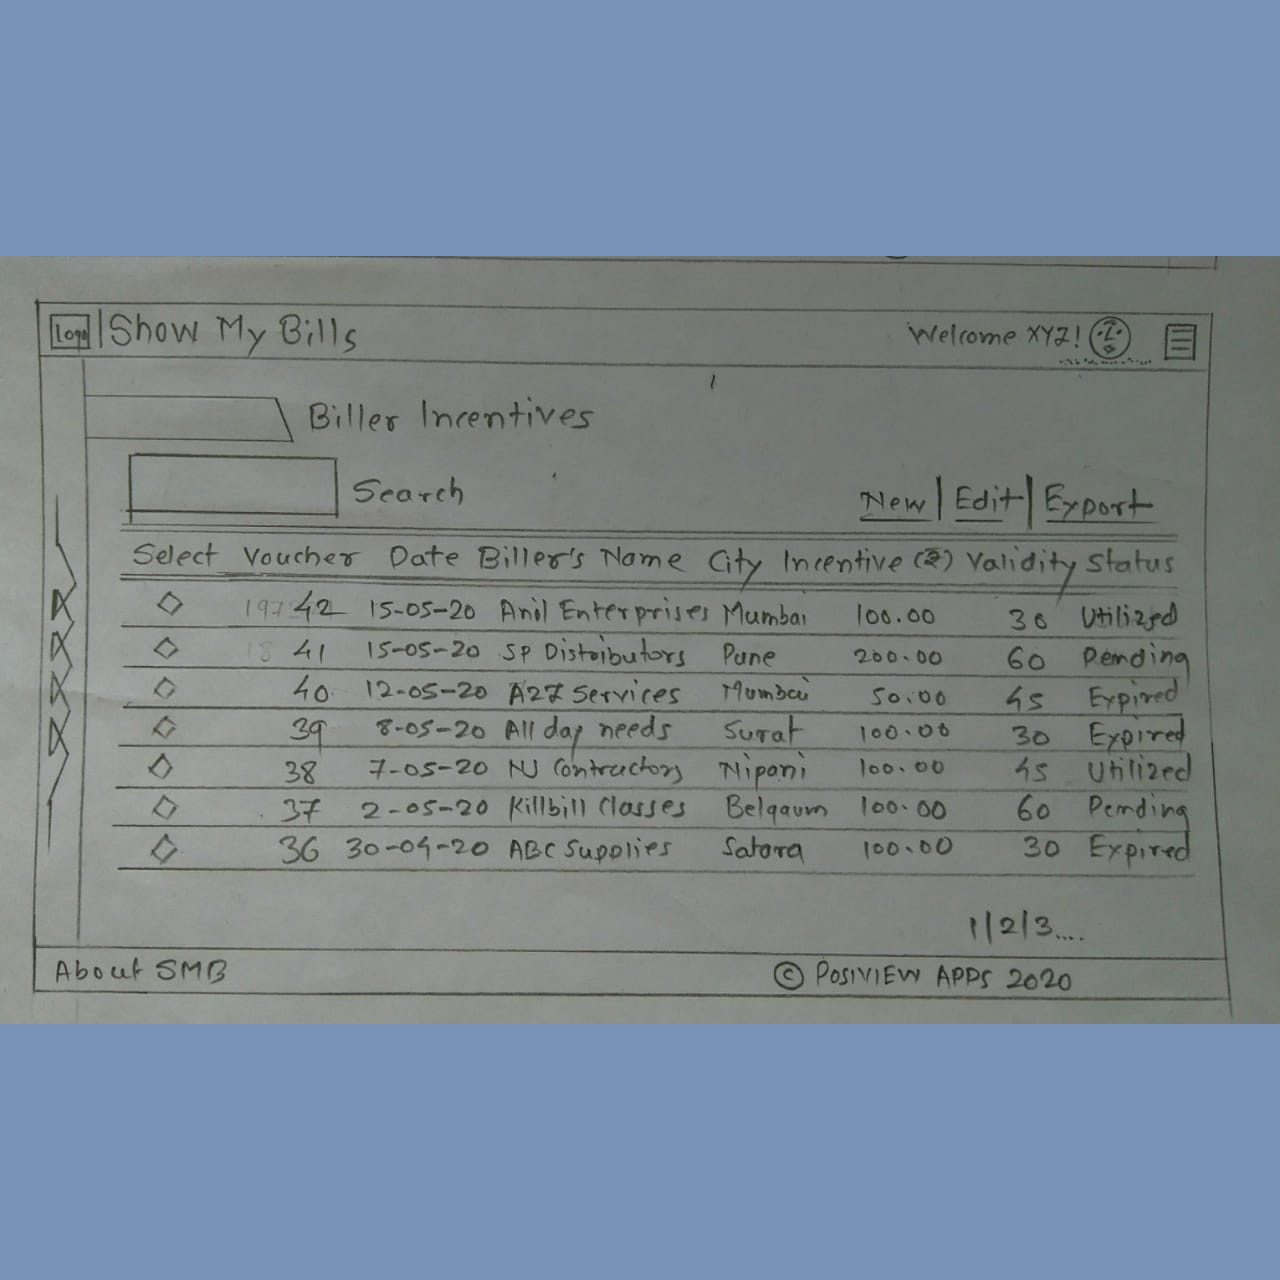 Logo Show My Bills Welcome XYZ!
Biller Incentives
Search New | Edit | Export
Select Voucher Date Biller's Name City Incentive (₹) Validity Status
42 15-05-20 Anil Enterprises Mumbai 100.00 30 Utilized
41 15-05-20 SP Distributors Pune 200.00 60 Pending
40 12-05-20 A2Z Services Mumbai 50.00 45 Expired
39 8-05-20 All day needs Surat 100.00 30 Expired
38 7-05-20 NJ Contractors Nipani 100.00 45 Utilized
37 2-05-20 Killbill Classes Belgaum 100.00 60 Pending
36 30-04-20 ABC Supplies Satara 100.00 30 Expired
1|2|3....
About SMB © POSIVIEW APPS 2020